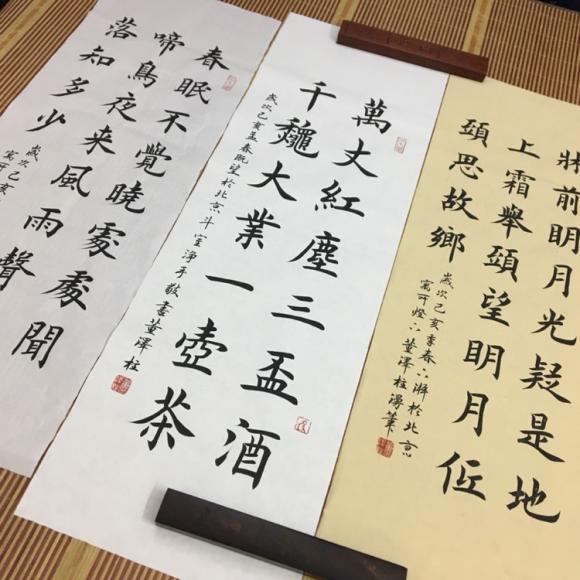 牀前明月光疑是地
上霜舉頭望明月低
頭思故鄉
歲次己亥季春 於北京
寓可燈下董澤柱 筆
萬丈紅塵三盃酒
千龝大業一壺茶
歲次己亥孟春既望於北京斗室淨手敬書董澤柱
春眠不覺曉處處聞
啼鳥夜来風雨聲
落知多少
歲次己亥
寓可